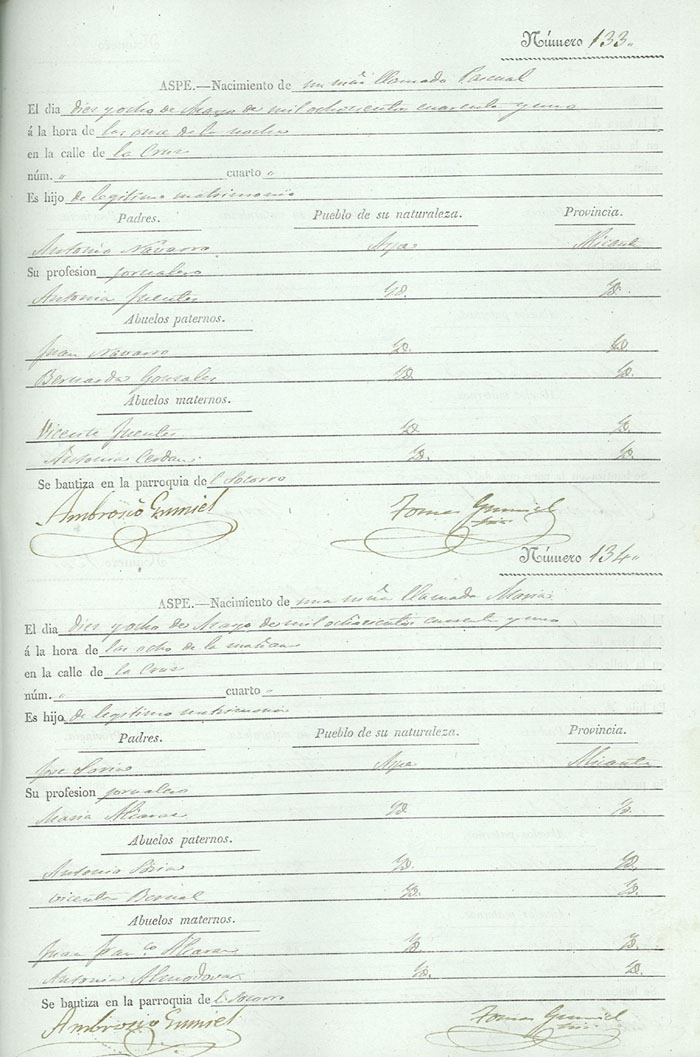 Número 133.
ASPE.—Nacimiento de un niño llamado Pascual
El dia diez y ocho de Mayo de mil ochocientos cuarenta y uno
á la hora de las once de la noche
en la calle de la Cruz
núm. " cuarto "
Es hijo de legitimo matrimonio
Padres. Pueblo de su naturaleza. Provincia.
Antonio Navarro Aspe Alicante
Su profesion jornalero
Antonia Fuentes Yd. Yd.
Abuelos paternos.
Juan Navarro Yd. Yd.
Bernarda Gonzalez Yd. Yd.
Abuelos maternos.
Vicente Fuentes Yd. Yd.
Antonia Cerdan Yd. Yd.
Se bautiza en la parroquia del Socorro
Ambrosio Gumiel Tomas Gumiel
Número 134.
ASPE.—Nacimiento de una niña llamada Maria
El dia diez y ocho de Mayo de mil ochocientos cuarenta y uno
á la hora de las ocho de la mañana
en la calle de la Cruz
núm. " cuarto "
Es hijo de legitimo matrimonio
Padres. Pueblo de su naturaleza. Provincia.
Jose Aspe Alicante
Su profesion jornalero
Maria Yd. Yd.
Abuelos paternos.
Antonio Yd. Yd.
Vicenta Bernal Yd. Yd.
Abuelos maternos.
Juan Fran.co Yd. Yd.
Antonia Almodovar Yd. Yd.
Se bautiza en la parroquia del Socorro
Ambrosio Gumiel Tomas Gumiel